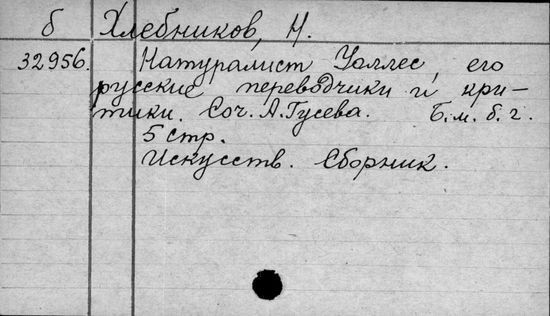 б Хлебников, Н.
32956. Натуралист Уоллес, его
русские переводчики и кри-
тики. Соч. А. Гусева. Б.м. б.г.
5 стр.
Искусств. Сборник.